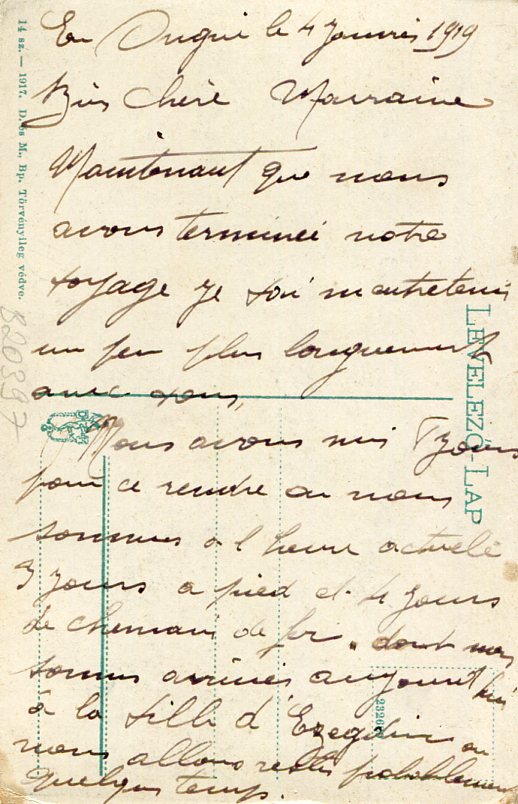 En Ongrie le 4 Janvrié 1919
Bien Chère Marraine
Maintenant que nous
avons terminéé notre
voyage je vai m'entretenir
un peu plus longuement
avec vous,
Nous avons mis 7 Jours
pour ce rendre ou nous
sommes a l'heure actuelé
3 Jours a pied et 4 Jours
de chemain de fer, dont nous
somes arrivéé aujourd'hui
à la ville d'Ezegdin ou
nous allons restés probablement
quelques temps.
14 sz. — 1917. D. és M., Bp. Törvényileg védve.
LEVELEZŐ-LAP